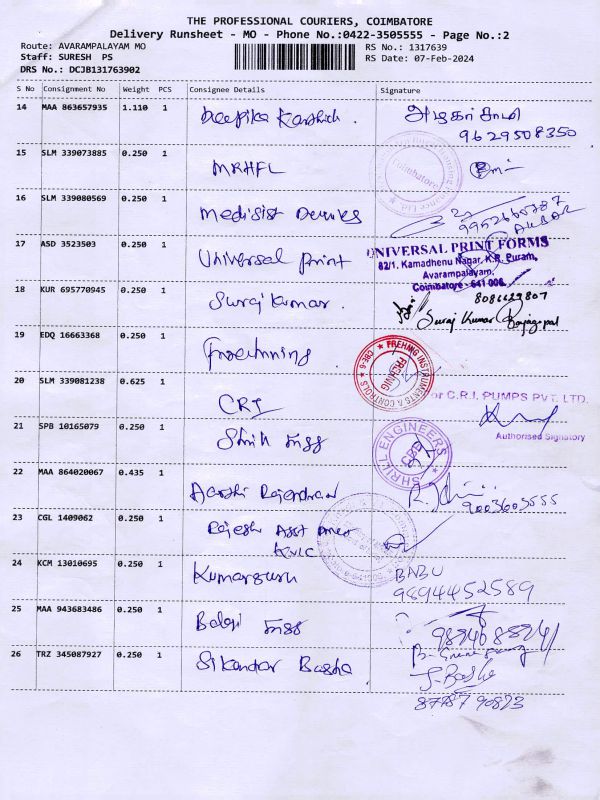 THE PROFESSIONAL COURIERS, COIMBATORE
Delivery Runsheet - MO - Phone No.:0422-3505555 - Page No.:2
Route: AVARAMPALAYAM MO
RS No.: 1317639
Staff: SURESH PS
RS Date: 07-Feb-2024
DRS No.: DCJB131763902
S No Consignment No Weight PCS Consignee Details Signature
14 MAA 863657935 1.110 1 Deepika Karthick .
9629508350
15 SLM 339073885 0.250 1 MRHFL
Coimbatore
16 SLM 339080569 0.250 1 Medisist
9952665787
AKBAR
17 ASD 3523503 0.250 1 Universal Print
UNIVERSAL PRINT FORMS
82/1, Kamadhenu Nagar, K.R. Puram,
Avarampalayam,
Coimbatore - 641 006.
18 KUR 695770945 0.250 1 Suraj Kumar .
8086129807
Suraj Kumar Rajagopal
19 EDQ 16663368 0.250 1
FREHNIG INSTRUMENTS & CONTROLS
CBE-6
FREHNIG
20 SLM 339081238 0.625 1 CRI
For C.R.I. PUMPS PVT. LTD.
Authorised Signatory
21 SPB 10165079 0.250 1
SHRILL ENGINEERS
CBE
22 MAA 864020067 0.435 1 Aarthi Rajendran
9003603555
23 CGL 1409062 0.250 1 Rajesh Asst
24 KCM 13010695 0.250 1 Kumarguru
BABU
9894452589
25 MAA 943683486 0.250 1 Balaji
26 TRZ 345087927 0.250 1 Sikandar Basha
J. Basha
8778790823